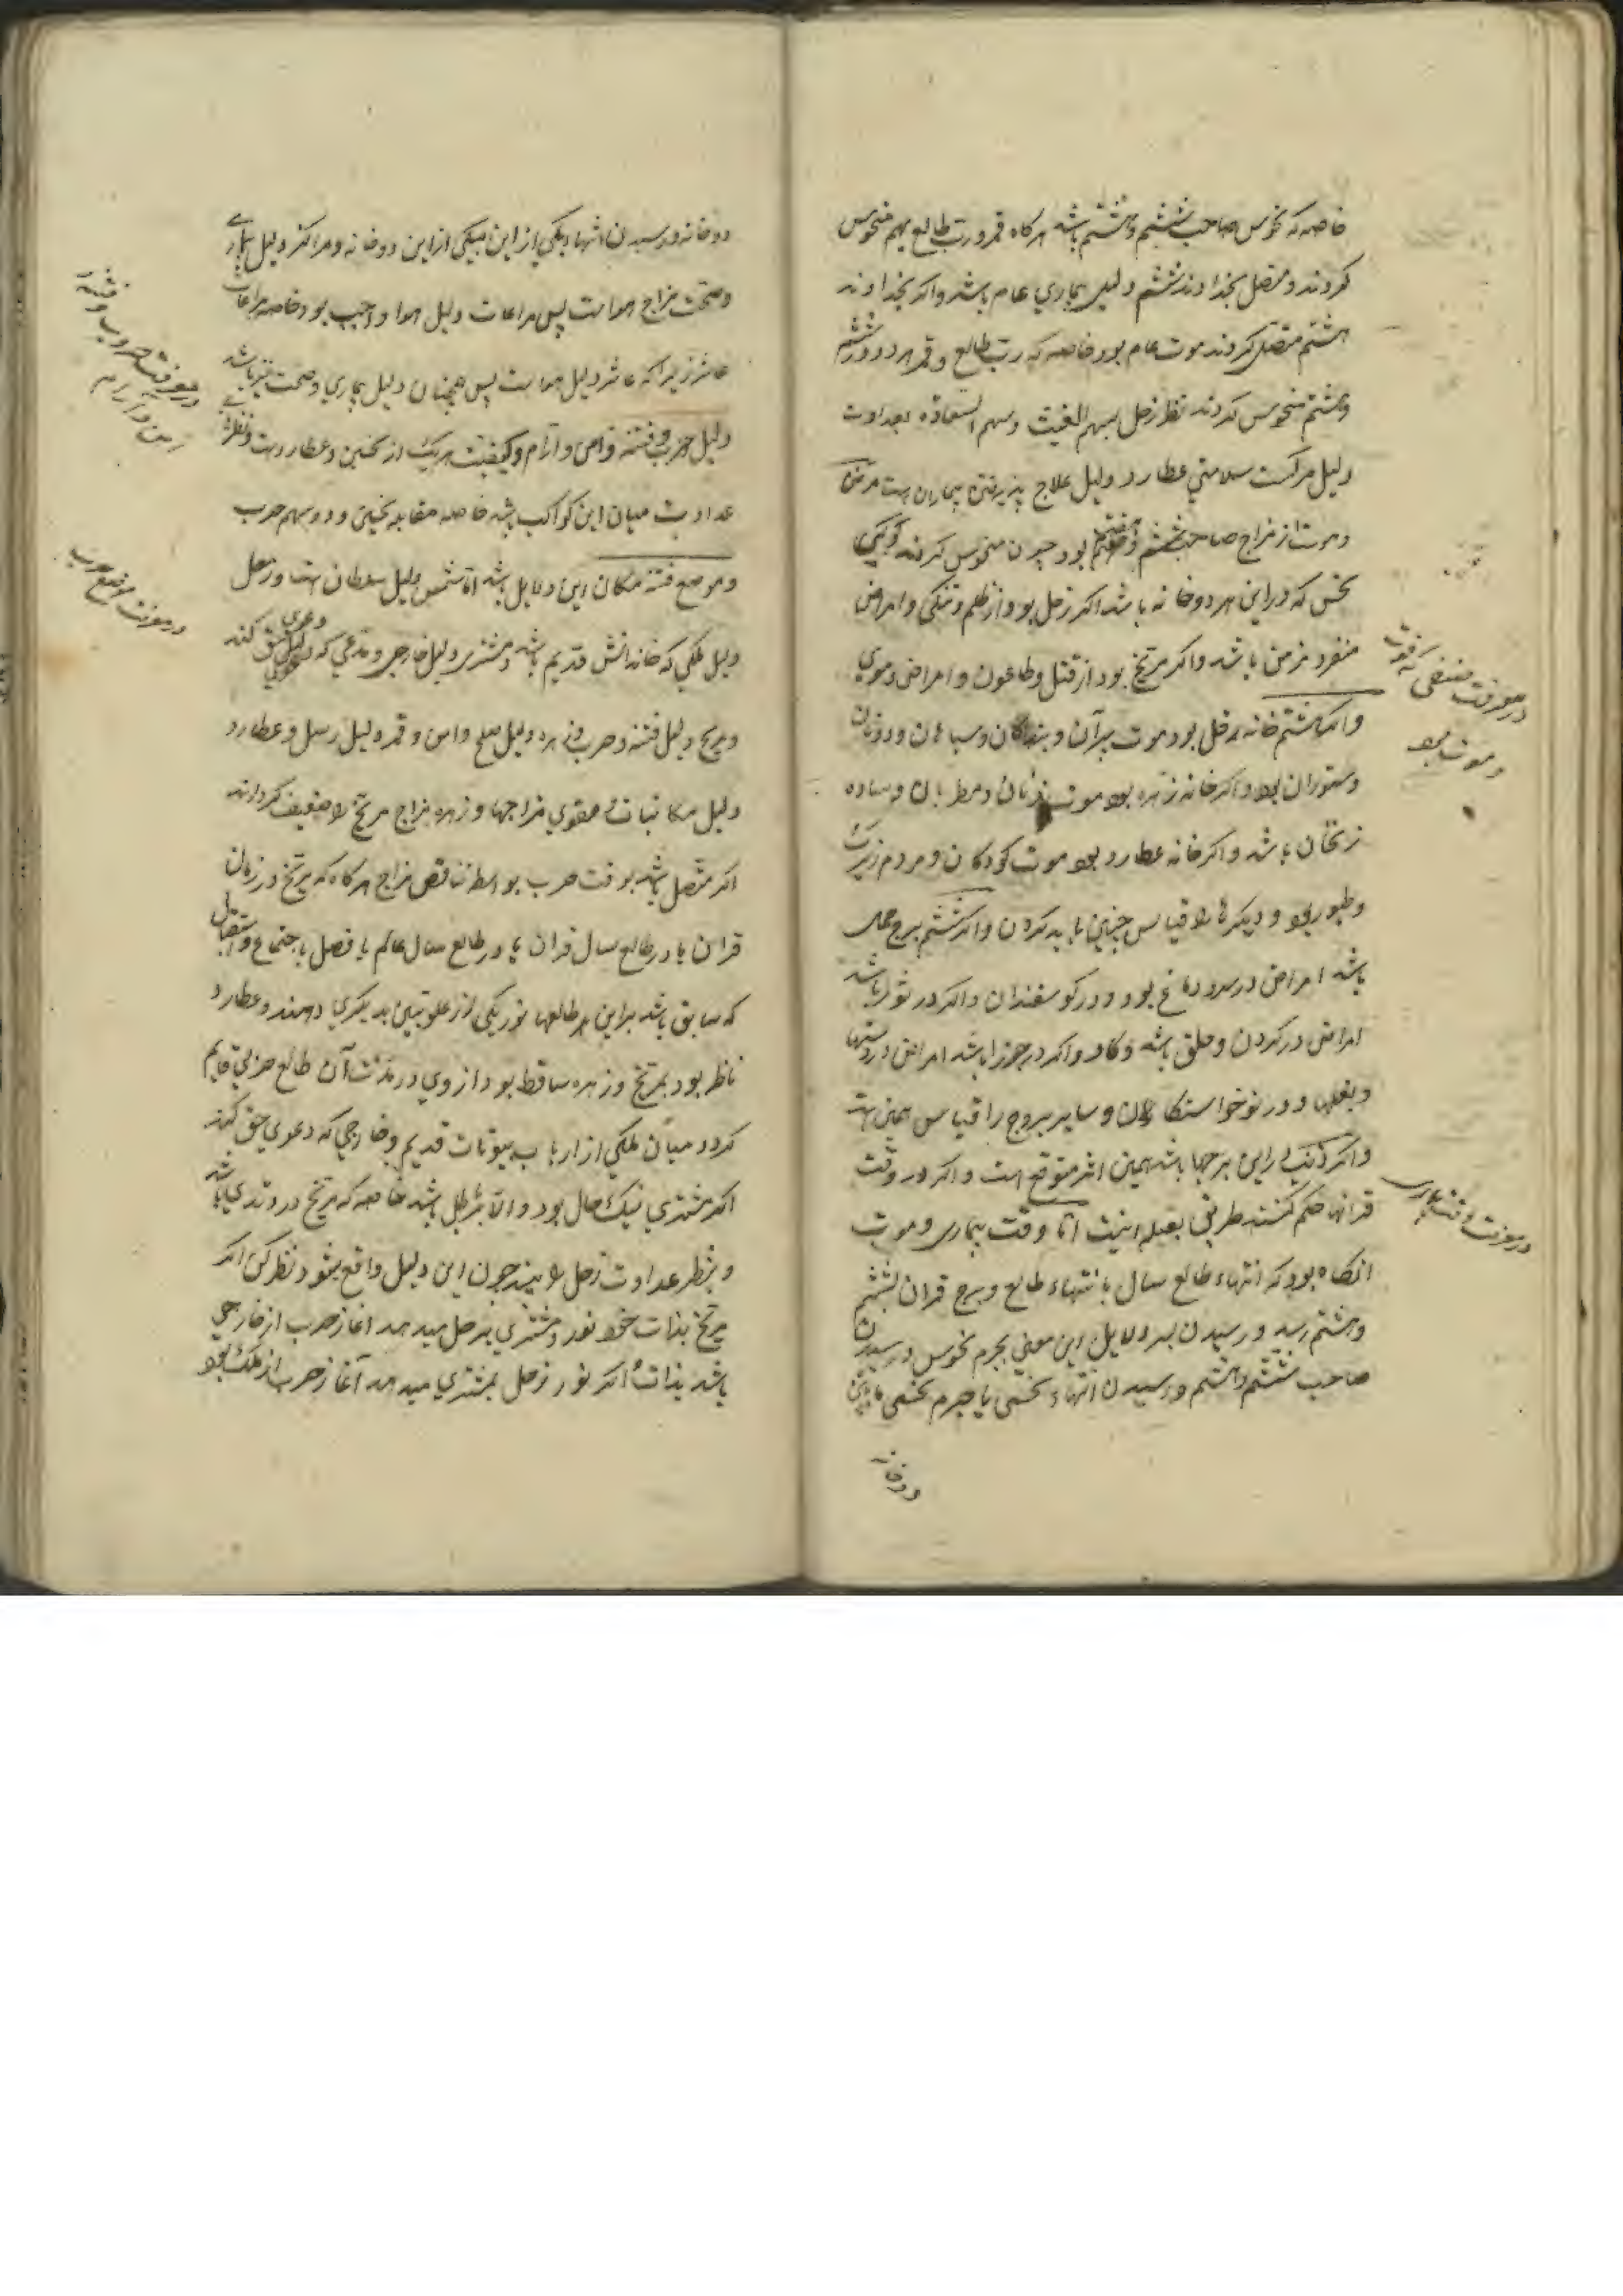 خاصه که نحوس صاحب ششم و هشتم باشد هر کاه قمر و رب طالع بهم منحوس
کردند و متصل بخداوند ششم دلیل بیماری عام باشد و اکر بخداوند
هشتم متصل کردند موت عام بود خاصه که رب طالع و قمر هر دو در ششم
و هشتم منحوس کردند نظر زحل بسهم الغیب و سهم السعاده بعداوت
دلیل مرکست سلامتی عطارد دلیل علاج پذیرفتن بیماران است مرض
و موت از مزاج صاحب ششم و هشتم بود چون منحوس کردند کوکبی
نحس که در این هر دو خانه باشد اکر زحل بود از ظلم و تنکی و امراض
منفرد مزمن باشد و اکر مریخ بود از قتل و طاعون و امراض دموی
و اکر هشتم خانه زحل بود موت پیران و بندکان و سیاهان و دونان
و ستوران بود و اکر خانه زهره بود موت زنان و مطربان و ساده
زنخان باشد و اکر خانه عطارد بود موت کودکان و مردم زیرک
و طیور بود و دیکرها را قیاس چنین باید کردن و اکر ششم برج حمل
باشد امراض در سر و دماغ بود و در کوسفندان و اکر در ثور باشد
امراض در کردن و حلق باشد و کاو و اکر در جوزا باشد امراض در دستها
و بغلها و در نوخواستکان و سایر بروج را قیاس همین است
و اکر ذنب در این برجها باشد همین اثر متوقع است و اکر در وقت
قرانها حکم کنند طریق بعمل اینست اما وقت بیماری و موت
آنکاه بود که انتهاء طالع سال با انتهاء طالع و برج قران بششم
و هشتم رسد و رسیدن سر دلایل این معنی بجرم نحوس و رسیدن
صاحب ششم و هشتم و رسیدن انتهاء نحسی با جرم نحسی باین
دو خانه
در معرفت صنفی که فوت
و موت بود
در معرفت وقت بیماری
دو خانه و رسیدن انتها بیکی از این بیکی از این دو خانه و مراکز دلیل بیماری
و صحت مزاج هواست پس مراعات دلیل هوا واجب بود خاصه مراعات
عاشر زیرا که عاشر دلیل هواست پس همچنان دلیل بیماری و صحت نیز باشد
دلیل حرب و فتنه و امن و آرام و کیفیت هر یک از نحسین و عطارد است و نظر
عداوت میان این کواکب باشد خاصه مقابله نحسین و درو سهم حرب
و موضع فتنه مکان این دلایل باشد اما شمس دلیل سلطان است و زحل
دلیل ملکی که خاندانش قدیم باشد و مشتری دلیل خارجی و مدعی که دعوی حق کند
و مریخ دلیل فتنه و حرب و زهره دلیل صلح و امن و قمر دلیل رسل و عطارد
دلیل مکاتبات مقوی مزاجها و زهره مزاج مریخ را ضعیف کرداند
اکر متصل باشد بوقت حرب بواسطه تناقص مزاج هر کاه که مریخ در زمان
قران یا در طالع سال قران یا در طالع سال عالم یا فصل یا اجتماع و استقبال
که سابق باشد بر این طالعها نور یکی از علویین بدیکری دهند و عطارد
ناظر بود بمریخ و زهره ساقط بود از وی در مدت آن طالع حربی قایم
کردد میان ملکی از ارباب بیوتات قدیم و خارجی که دعوی حق کند
اکر مشتری نیک حال بود و الا باطل باشد خاصه که مریخ در وتدی باشد
و بنظر عداوت زحل را بیند چون این دلیل واقع شود نظر کن اکر
مریخ بذات خود نور مشتری بزحل میدهد آغاز حرب از خارجی
باشد بذات و اکر نور زحل بمشتری میدهد آغاز حرب از ملک بود
در معرفت حروب و فتنه و
امن و آرام
در معرفت موضع حرب